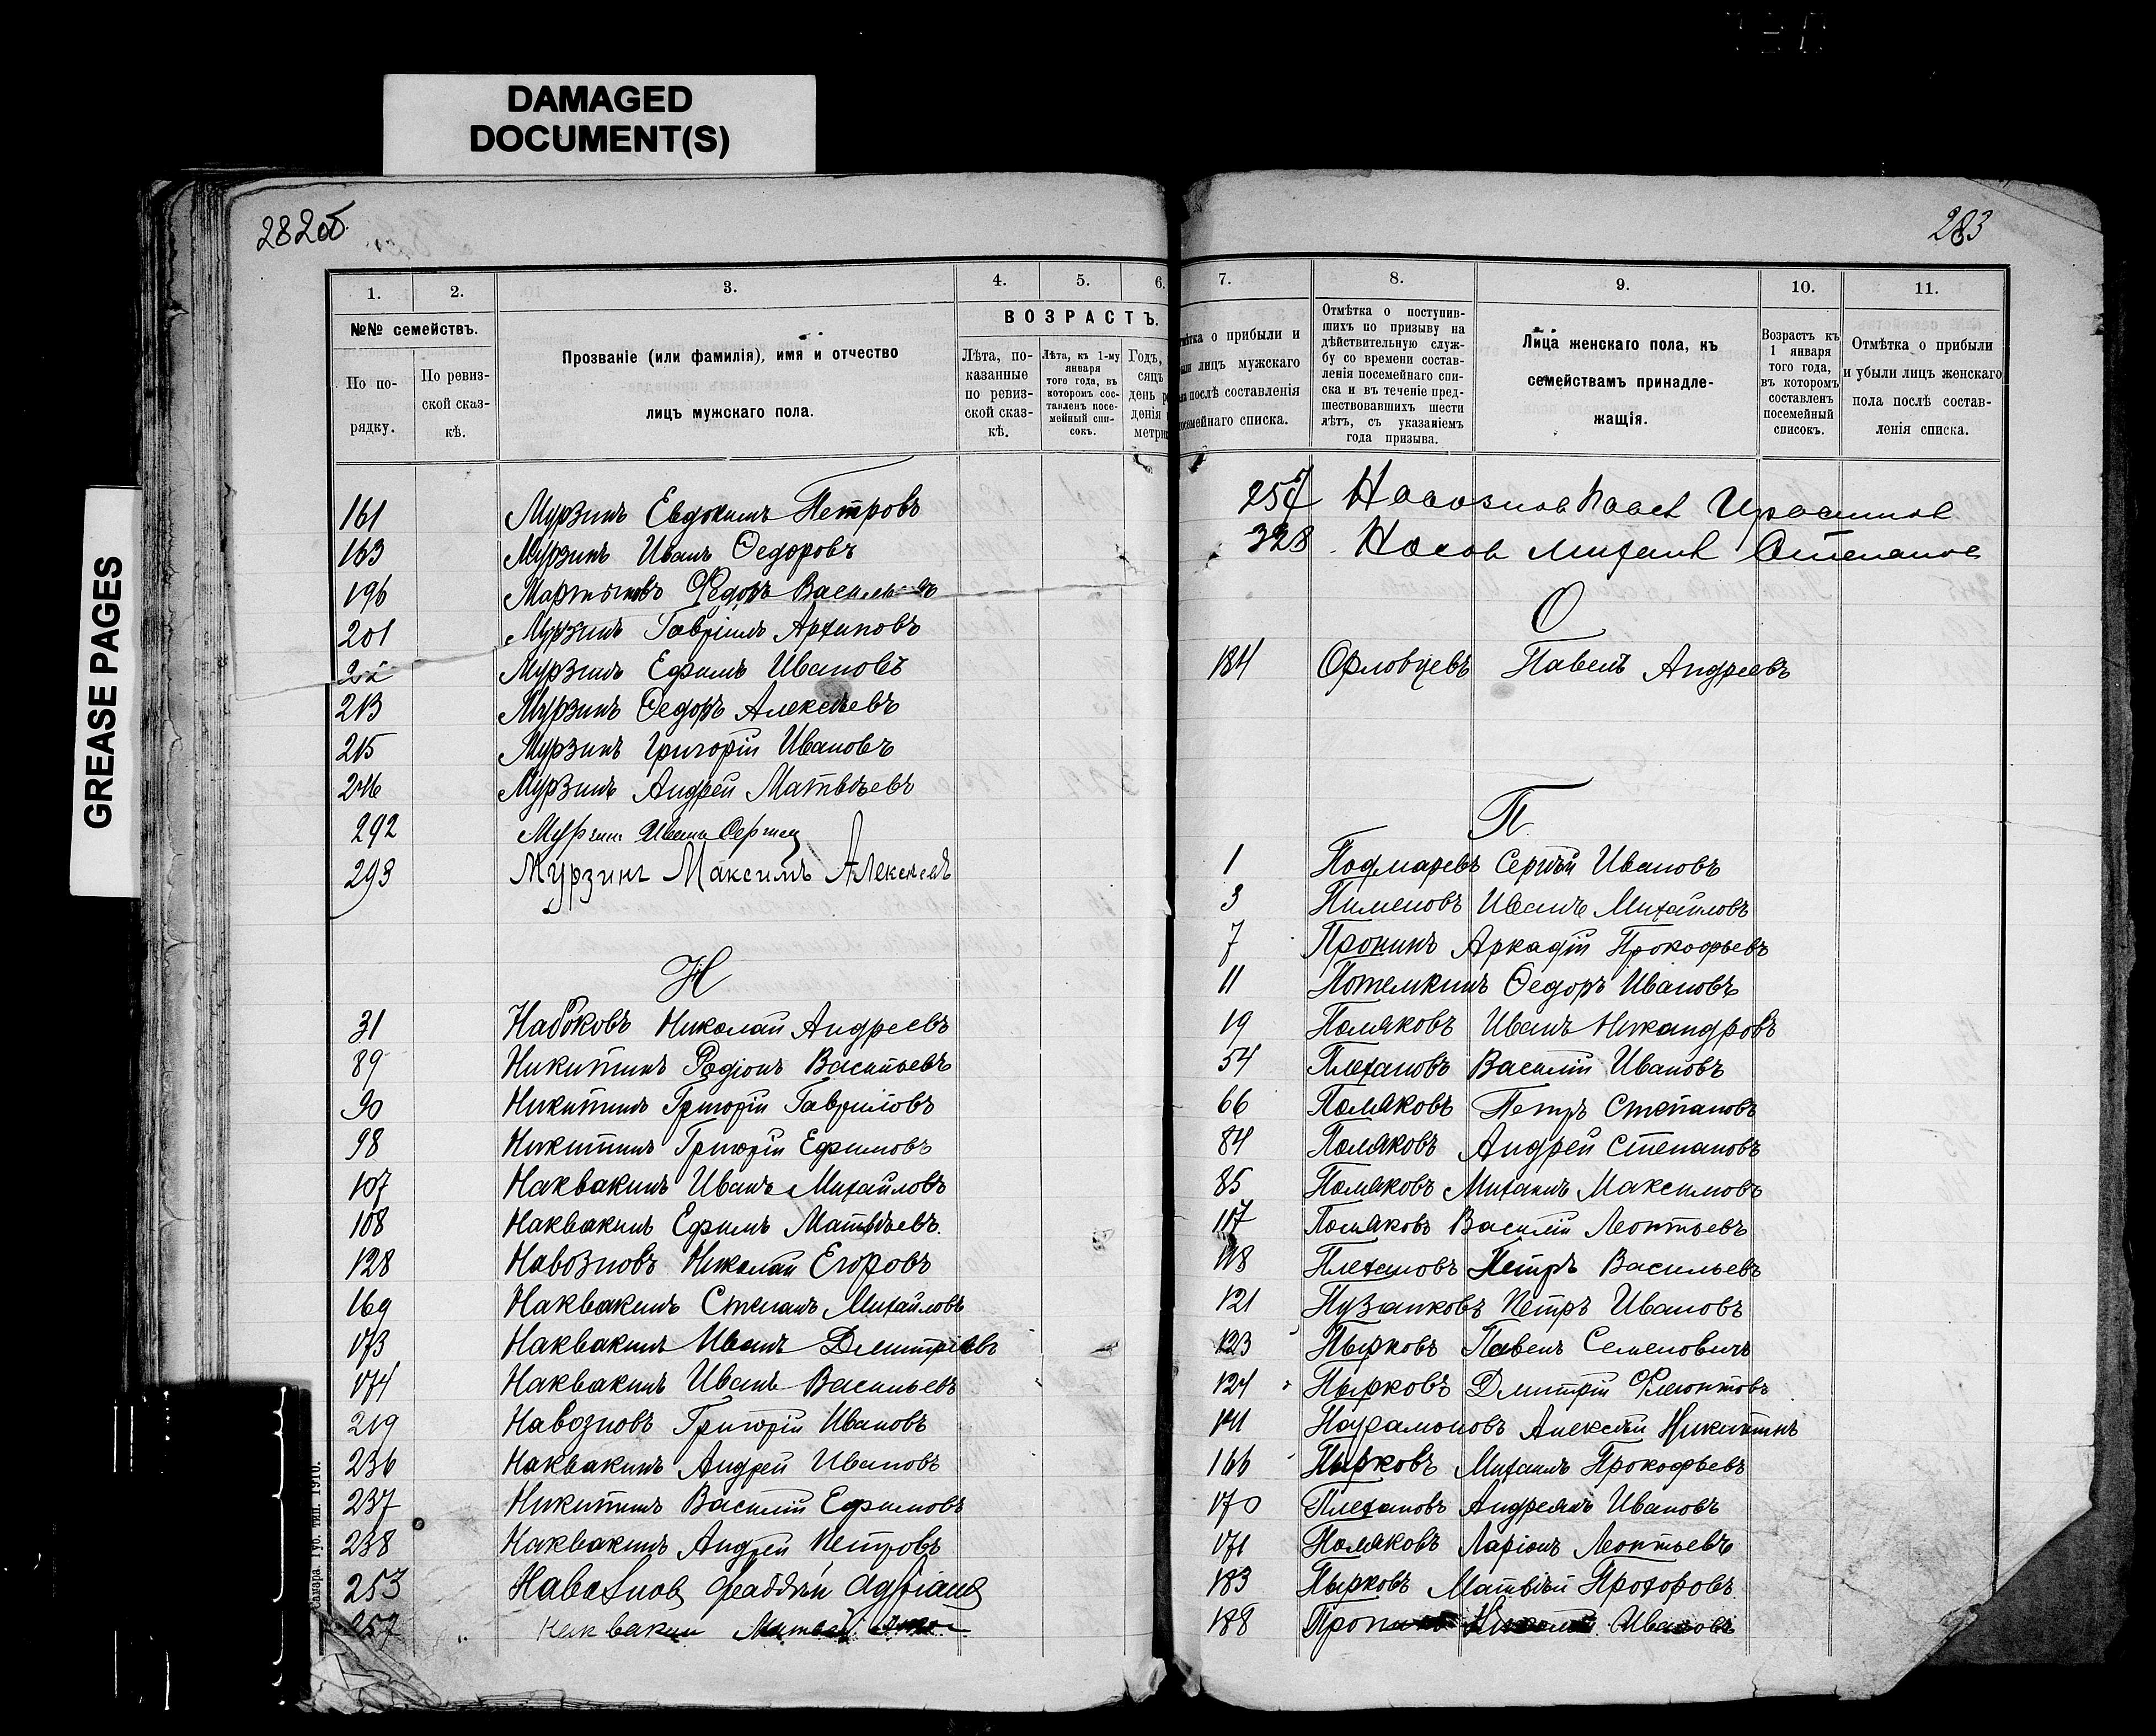 DAMAGED
DOCUMENT(S)
GREASE PAGES
282об
1. 2. 3. 4. 5. 6.
№№ семействъ.
По по-
рядку.
По ревиз-
ской сказ-
кѣ.
Прозваніе (или фамилія), имя и отчество
лицъ мужскаго пола.
ВОЗРАСТЪ.
Лѣта, по-
казанные
по ревиз-
ской сказ-
кѣ.
Лѣта, къ 1-му
января
того года, въ
которомъ сос-
тавленъ посе-
мейный спи-
сокъ.
Годъ,
сяцъ
день
денія
метри
161 Мурзинъ Евдокимъ Петровъ
163 Мурзинъ Иванъ Ѳедоровъ
196 Мартыновъ Ѳедоръ
201 Мурзинъ Гавріилъ Архиповъ
Мурзинъ Ефимъ Ивановъ
213 Мурзинъ Ѳедоръ Алексѣевъ
215 Мурзинъ Григорій Ивановъ
246 Мурзинъ Андрей Матвѣевъ
292 Мурзин Иван
293 Мурзинъ Максимъ Алексѣевъ
Н
31 Набоковъ Николай Андреевъ
89 Никитинъ Родіонъ Васильевъ
90 Никитинъ Григорій Гавриловъ
98 Никитинъ Григорій Ефимовъ
107 Наквакинъ Иванъ Михайловъ
108 Наквакинъ Ефимъ Матвѣевъ.
128 Навозновъ Николай Егоровъ
169 Наквакинъ Степанъ Михайловъ
173 Наквакинъ Иванъ Дмитріевъ
174 Наквакинъ Иванъ Васильевъ
219 Навозновъ Григорій Ивановъ
236 Наквакинъ Андрей Ивановъ
237 Никитинъ Василій Ефимовъ
238 Наквакинъ Андрей Петровъ
253 Навознов Фаддѣй
257 Наквакин Матвей
Самара. Губ. тип. 1910.
283
7. 8. 9. 10. 11.
о прибыли и
лицъ мужскаго
послѣ составленія
семейнаго списка.
Отмѣтка о поступив-
шихъ по призыву на
дѣйствительную служ-
бу со времени состав-
ленія посемейнаго спи-
ска и въ теченіе пред-
шествовавшихъ шести
лѣтъ, съ указаніемъ
года призыва.
Лица женскаго пола, къ
семействамъ принадле-
жащія.
Возрастъ къ
1 января
того года,
въ которомъ
составленъ
посемейный
списокъ.
Отмѣтка о прибыли
и убыли лицъ женскаго
пола послѣ состав-
ленія списка.
257 Навознов Павел
328 Носов Михаил Степанов
О
184 Орловцевъ Павелъ Андреевъ
П
1 Подмаревъ Сергѣй Ивановъ
3 Пименовъ Иванъ Михайловъ
7 Пронинъ Аркадій Прокофьевъ
11 Потемкинъ Ѳедоръ Ивановъ
19 Поляковъ Иванъ Никандровъ
54 Плехановъ Василій Ивановъ
66 Поляковъ Петръ Степановъ
84 Поляковъ Андрей Степановъ
85 Поляковъ Михаилъ Максимовъ
117 Поляковъ Василій Леонтьевъ
118 Плехановъ Петръ Васильевъ
121 Пузанковъ Петръ Ивановъ
123 Пырковъ Павелъ Семеновичъ
124 Пырковъ Дмитрій
141 Парамоновъ Алексѣй Никитинъ
166 Пырковъ Михаилъ Прокофьевъ
170 Плехановъ Андреянъ Ивановъ
171 Поляковъ Ларіонъ Леонтьевъ
183 Пырковъ Матвѣй Прохоровъ
188 Ивановъ